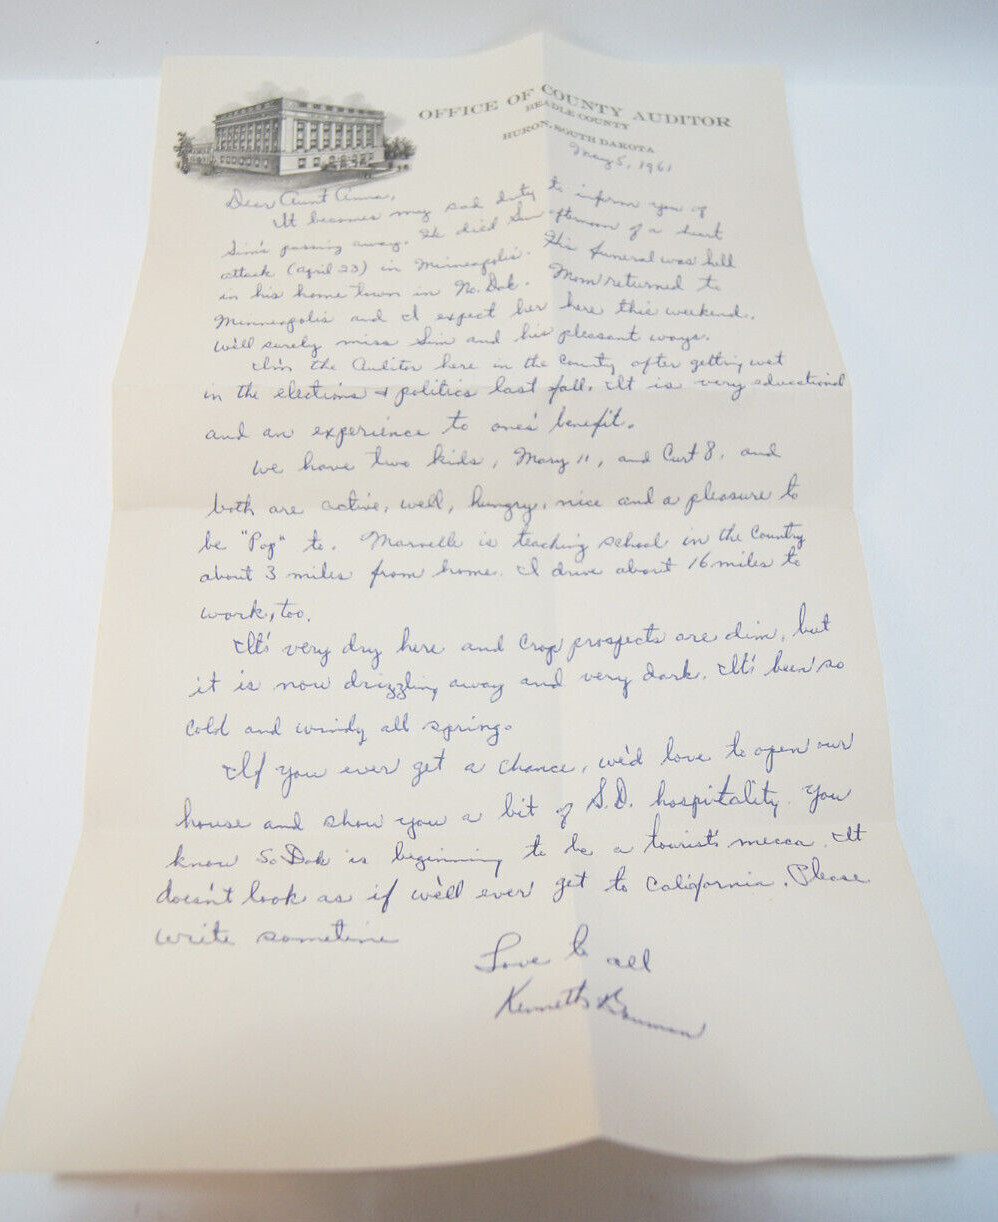 OFFICE OF COUNTY AUDITOR
BEADLE COUNTY
HURON, SOUTH DAKOTA
May 5, 1961
Dear Aunt Anna,
It becomes my sad duty to inform you of
Sim's passing away. He died Sun afternoon of a heart
attack (April 23) in Minneapolis. His funeral was held
in his home town in No. Dak. Mom returned to
Minneapolis and I expect her here this weekend.
We'll surely miss Sim and his pleasant ways.
I'm the Auditor here in the County after getting wet
in the elections & politics last fall. It is very educational
and an experience to one's benefit.
We have two kids, Mary 11, and Curt 8, and
both are active, well, hungry, nice and a pleasure to
be "Pop" to. Marvelle is teaching school in the Country
about 3 miles from home. I drive about 16 miles to
work, too.
It's very dry here and Crop prospects are dim, but
it is now drizzling away and very dark. It's been so
cold and windy all spring.
If you ever get a chance, we'd love to open our
house and show you a bit of S.D. hospitality. You
know So Dak is beginning to be a tourist's mecca. It
doesn't look as if we'll ever get to California. Please
write sometime
Love to all
Kenneth